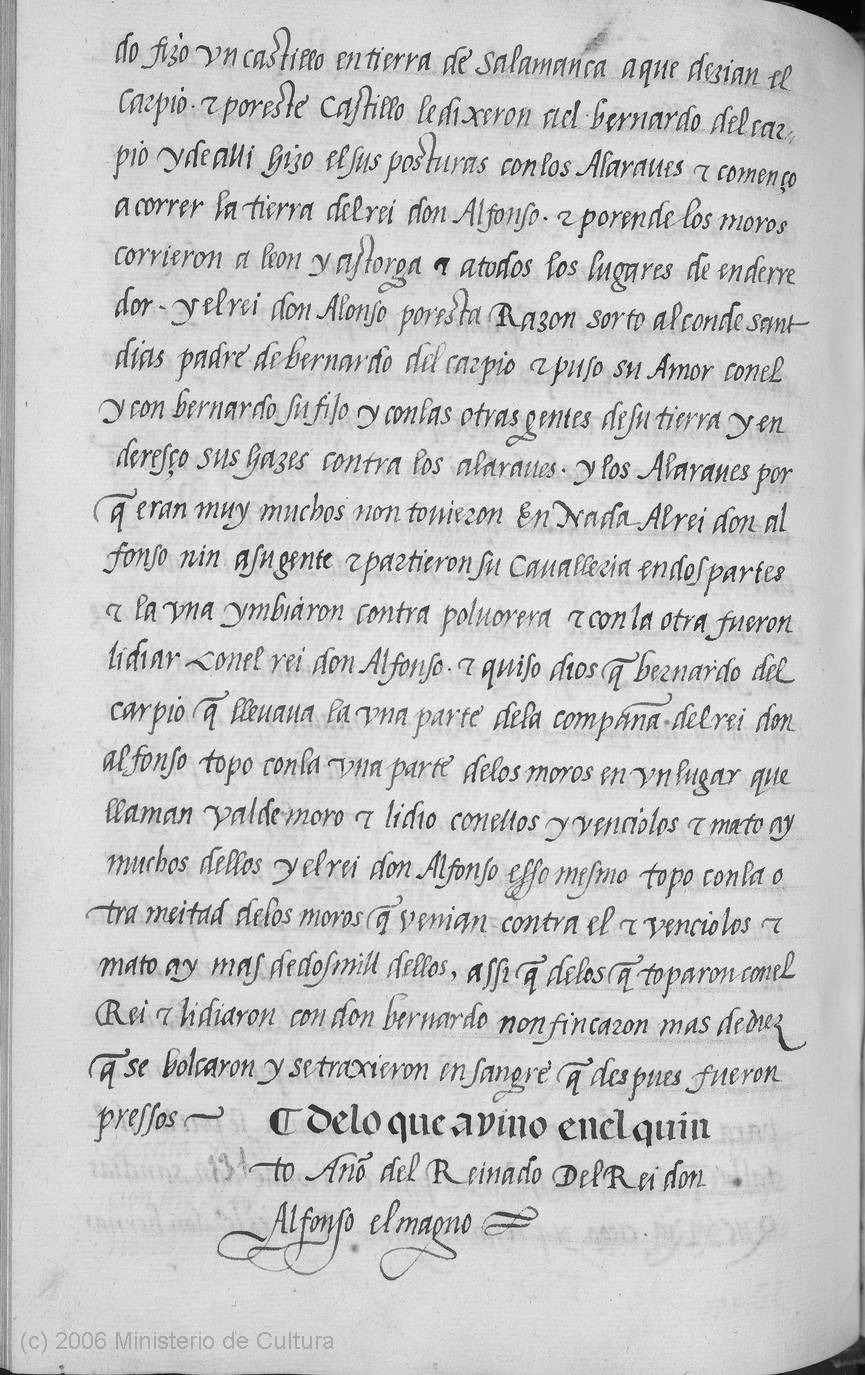 do fizo vn castillo en tierra de Salamanca a que dezian el
Carpio. τ por este Castillo le dixeron a el bernardo del car-
pio y de alli hizo el sus posturas con los Alaraues τ començo
a correr la tierra del rei don Alfonso. τ porende los moros
corrieron a leon y astorga τ a todos los lugares de enderre
dor. y el rei don Alonso por esta Razon sorto al conde sant
dias padre de bernardo del carpio τ puso su Amor con el
y con bernardo su fijo y con las otras gentes de su tierra y en
deresço sus hazes contra los alaraues. y los Alaraues por
q̃ eran muy muchos non touieron En Nada Al rei don al
fonso nin a su gente τ partieron su Caualleria en dos partes
τ la vna ymbiaron contra poluorera τ con la otra fueron
lidiar Con el rei don Alfonso. τ quiso dios q̃ bernardo del
carpio q̃ lleuaua la vna parte de la compaña del rei don
alfonso topo con la vna parte de los moros en vn lugar que
llaman valde moro τ lidio con ellos y venciolos τ mato ay
muchos dellos y el rei don Alfonso esso mesmo topo con la o
tra meitad de los moros q̃ venian contra el τ venciolos τ
mato ay mas de dos mill dellos, assi q̃ de los q̃ toparon con el
Rei τ lidiaron con don bernardo non fincaron mas de diez
q̃ se bolcaron y se traxieron en sangre q̃ despues fueron
pressos
¶ de lo que avino en el quin
to Año del Reinado Del Rei don
Alfonso el magno
(c) 2006 Ministerio de Cultura